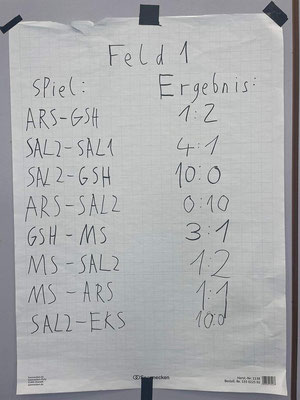 Feld 1
Spiel: Ergebnis:
ARS-GSH 1:2
SAL2-SAL1 4:1
SAL2-GSH 10:0
ARS-SAL2 0:10
GSH-MS 3:1
MS-SAL2 1:2
MS-ARS 1:1
SAL2-EKS 10:0